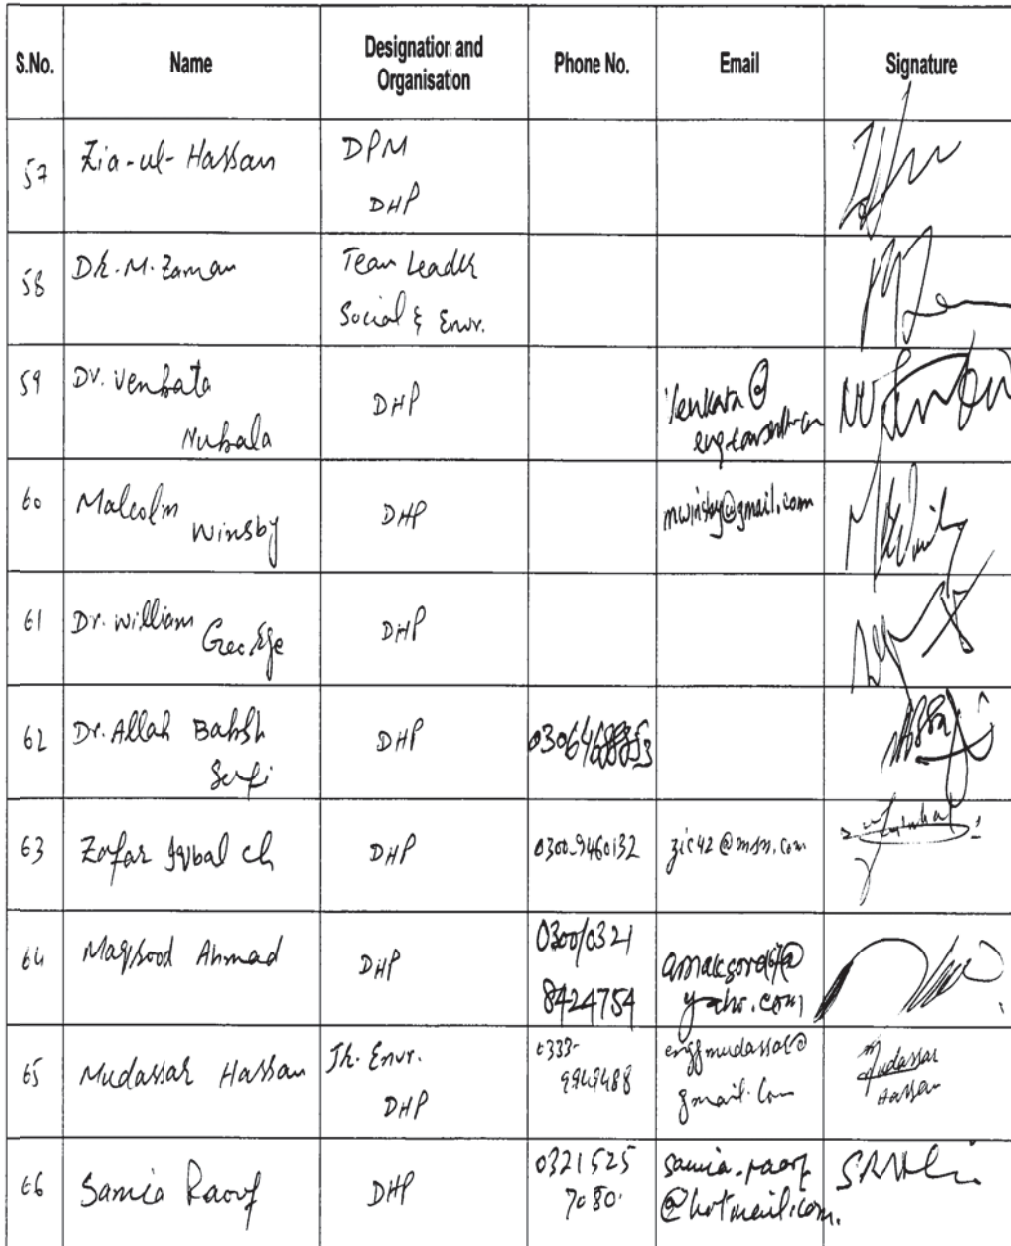 S.No. Name Designation and Organisation Phone No. Email Signature
57 Zia-ul-Hassan DPM
DHP
58 DR. M. Zaman Team Leader
Social & Envr.
59 Dr. Venkata DHP Venkata@
Nukala
60 Malcolm Winsby DHP mwinsby@gmail.com
61 Dr. William George DHP
62 Dr. Allah Bakhsh DHP
Sufi
63 Zafar Iqbal ch DHP 0300-9460132 zic42@msn.com
64 Maqsood Ahmad DHP 0300/0321
8424754 yahoo.com
65 Mudassar Hassan Jr. Envr. 0333- enggmudassar@
DHP 9949488 gmail.com Mudassar Hassan
66 Samia Raoof DHP 0321 525 samia.raoof
7080. @hotmail.com.